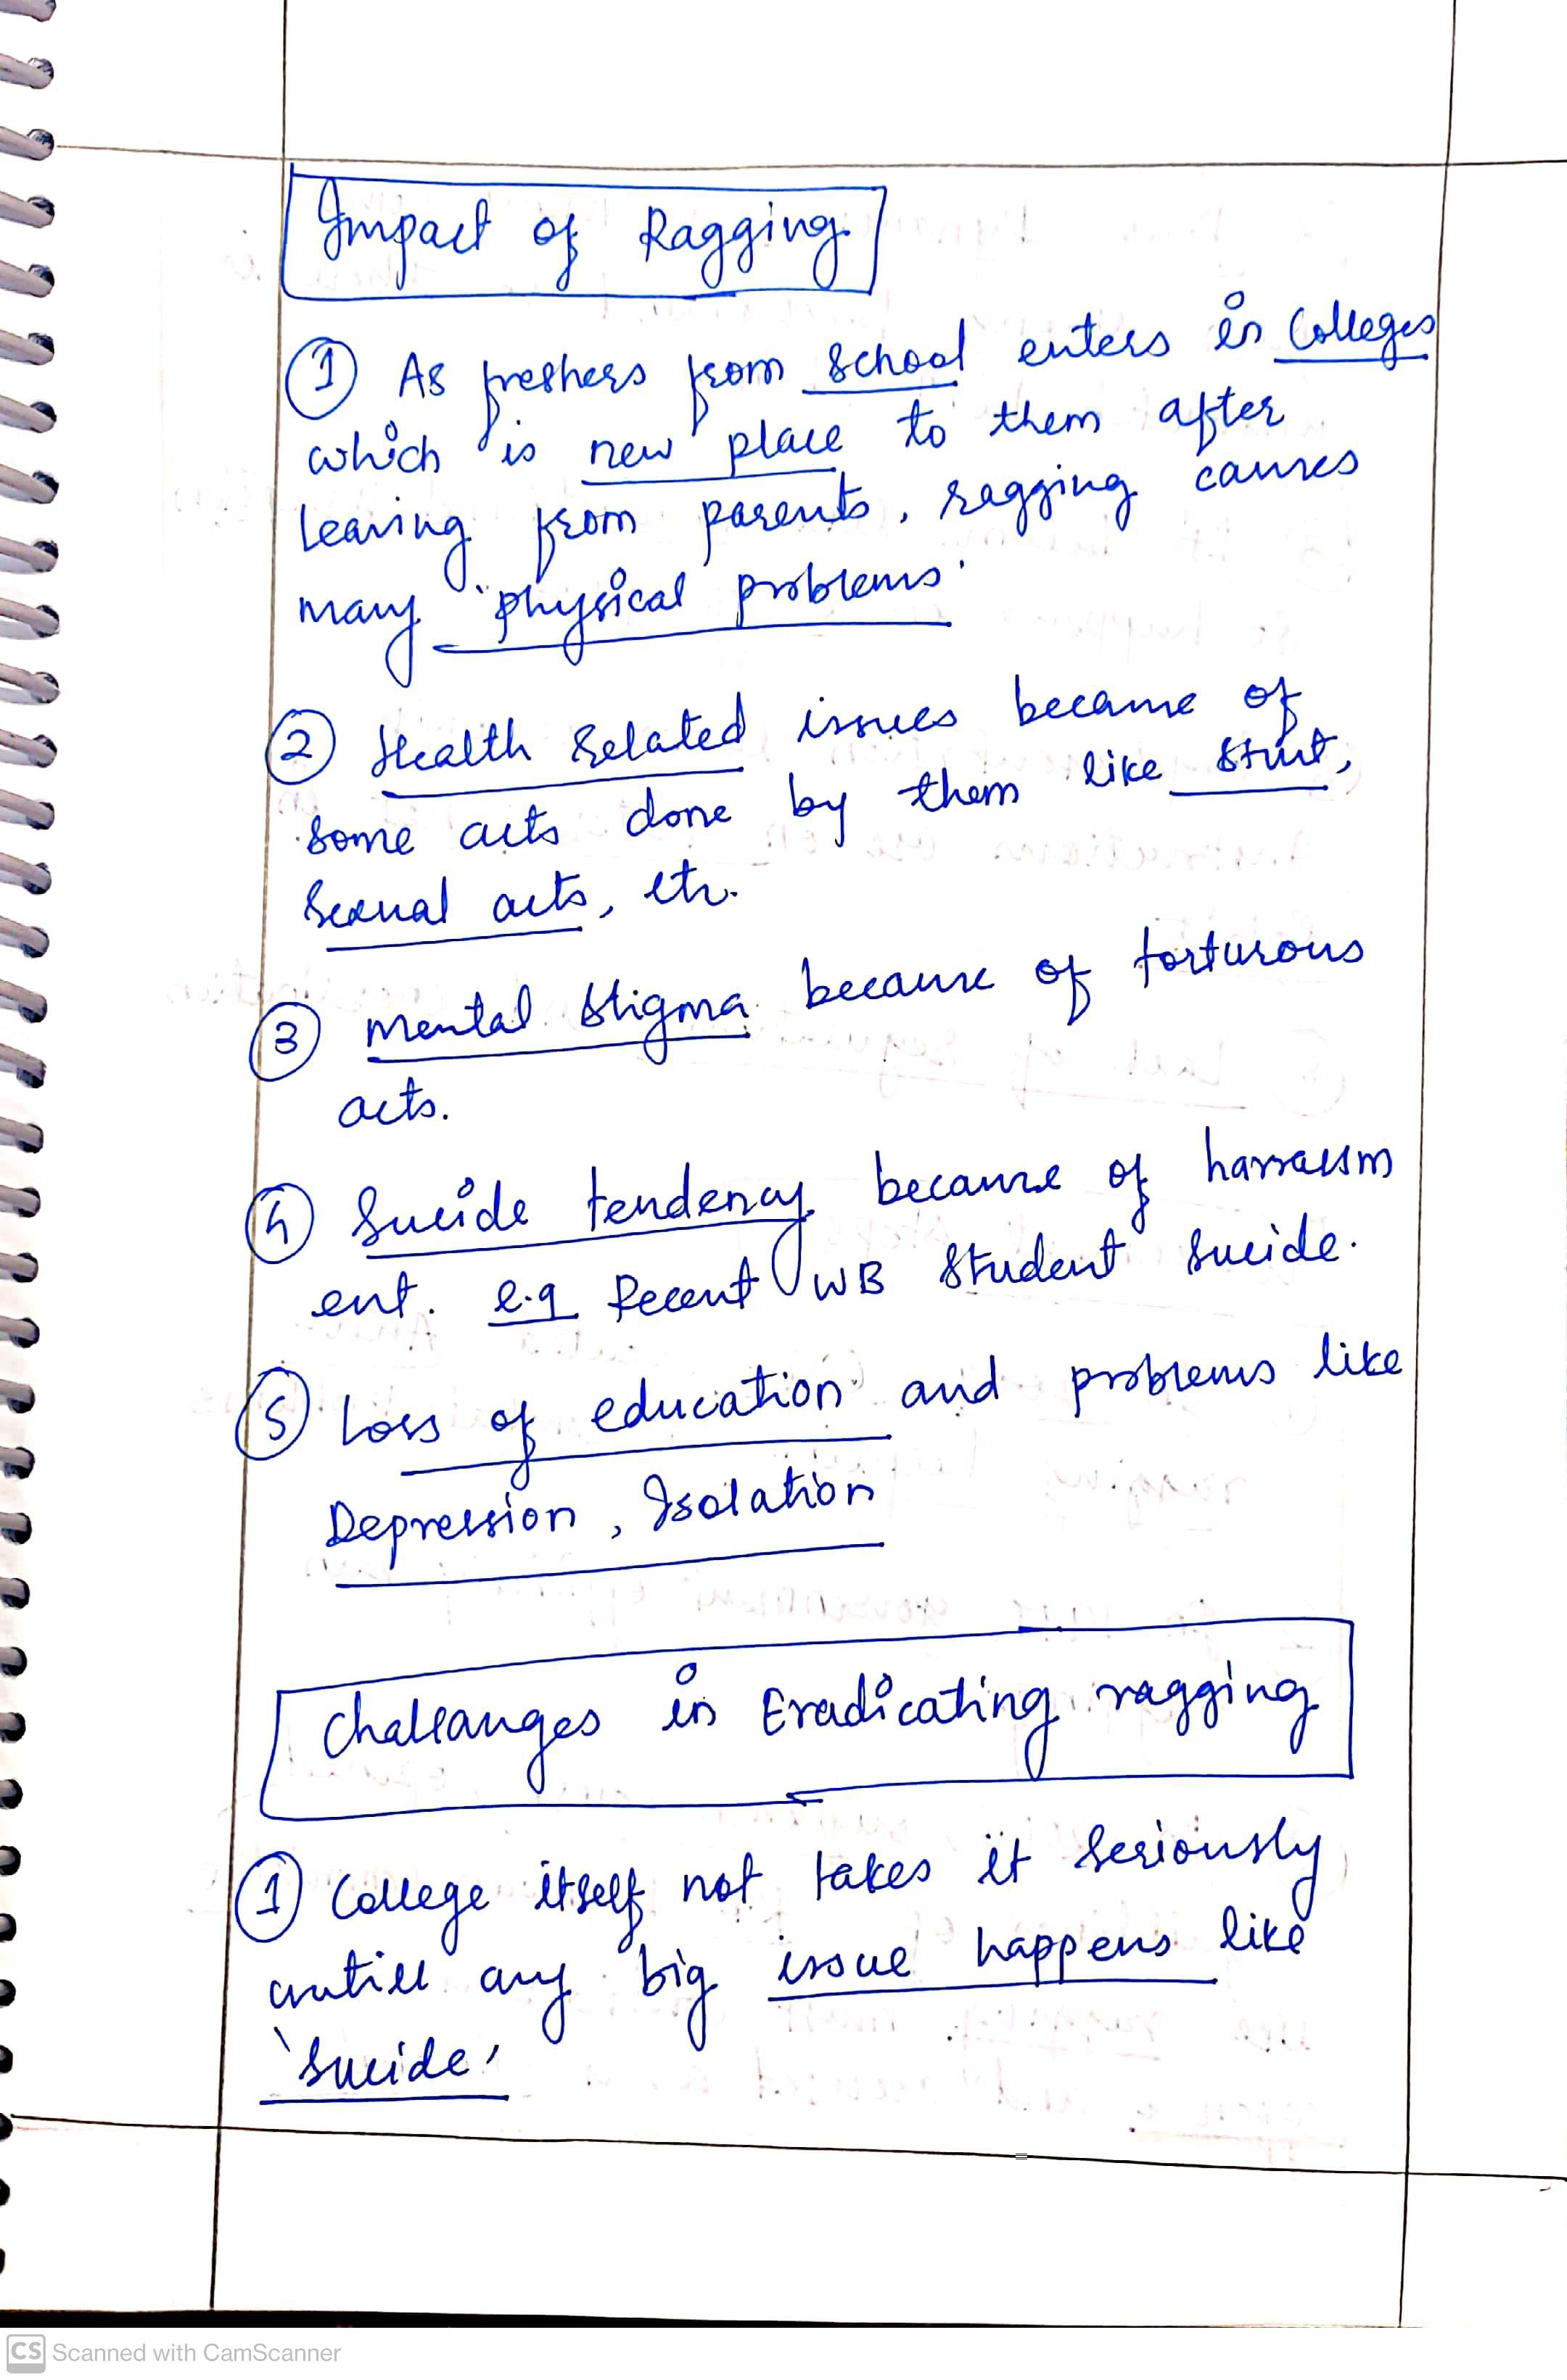 Impact of Ragging
① As freshers from school enters in Colleges
which is new place to them after
leaving from parents, ragging causes
many "physical problems"
② Health related issues because of
some acts done by them like stunt,
sexual acts, etc.
③ Mental stigma because of torturous
acts.
④ Sucide tendency because of harrassm
ent. e.g Recent WB student sucide.
⑤ Loss of education and problems like
Depression, Isolation
Challanges in Eradicating ragging
① College itself not takes it seriously
untill any big issue happens like
'Sucide'
CS Scanned with CamScanner